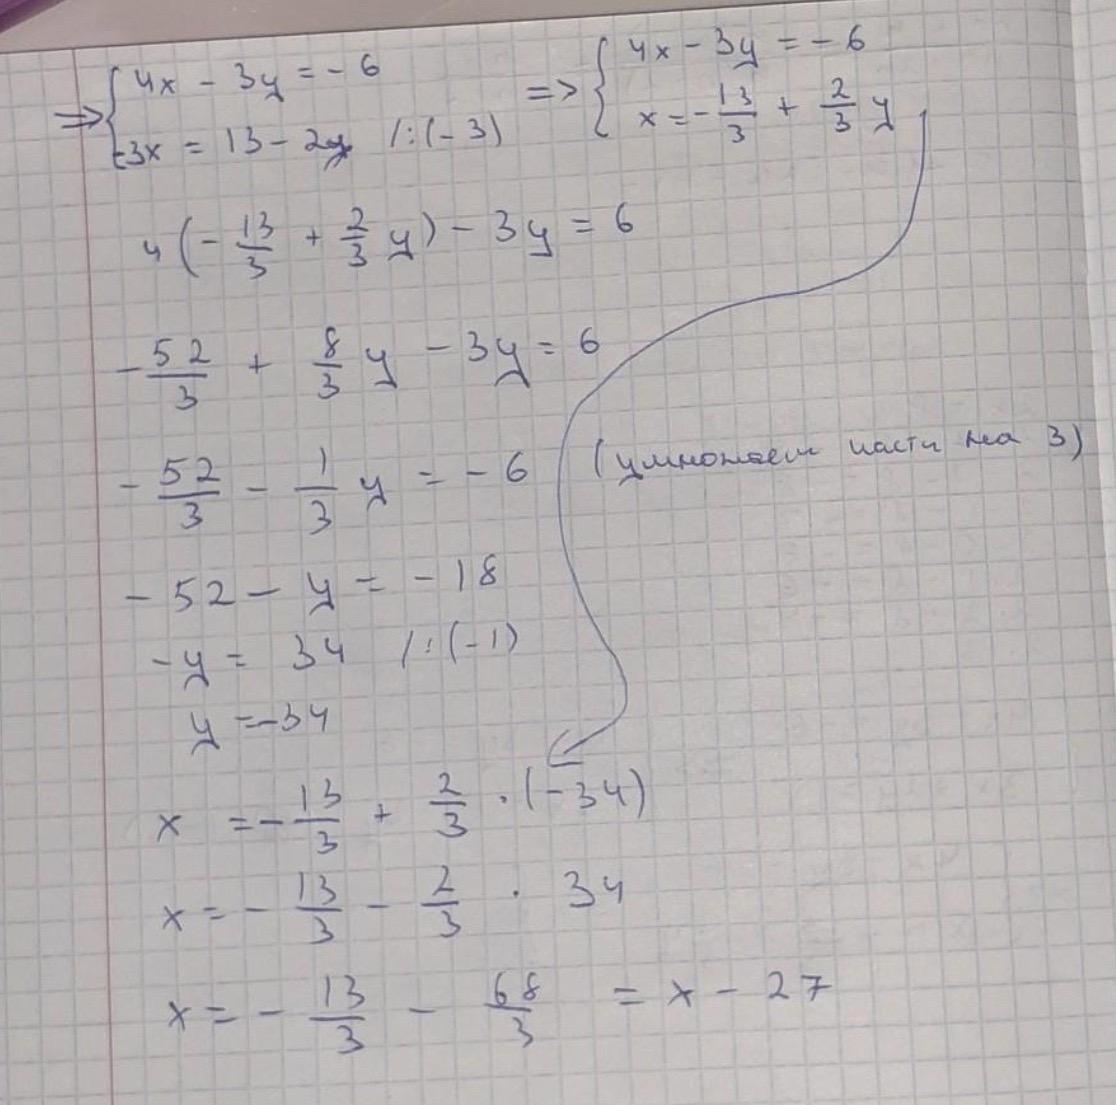 ⇒ { 4x - 3y = - 6 ⇒ { 4x - 3y = - 6
-3x = 13 - 2y /:(-3) x = - 13/3 + 2/3 y
4(- 13/3 + 2/3 y) - 3y = 6
- 52/3 + 8/3 y - 3y = 6
- 52/3 - 1/3 y = - 6 (умножаем части на 3)
- 52 - y = - 18
-y = 34 /:(-1)
y = -34
x = - 13/3 + 2/3 · (-34)
x = - 13/3 - 2/3 · 34
x = - 13/3 - 68/3 = x - 27